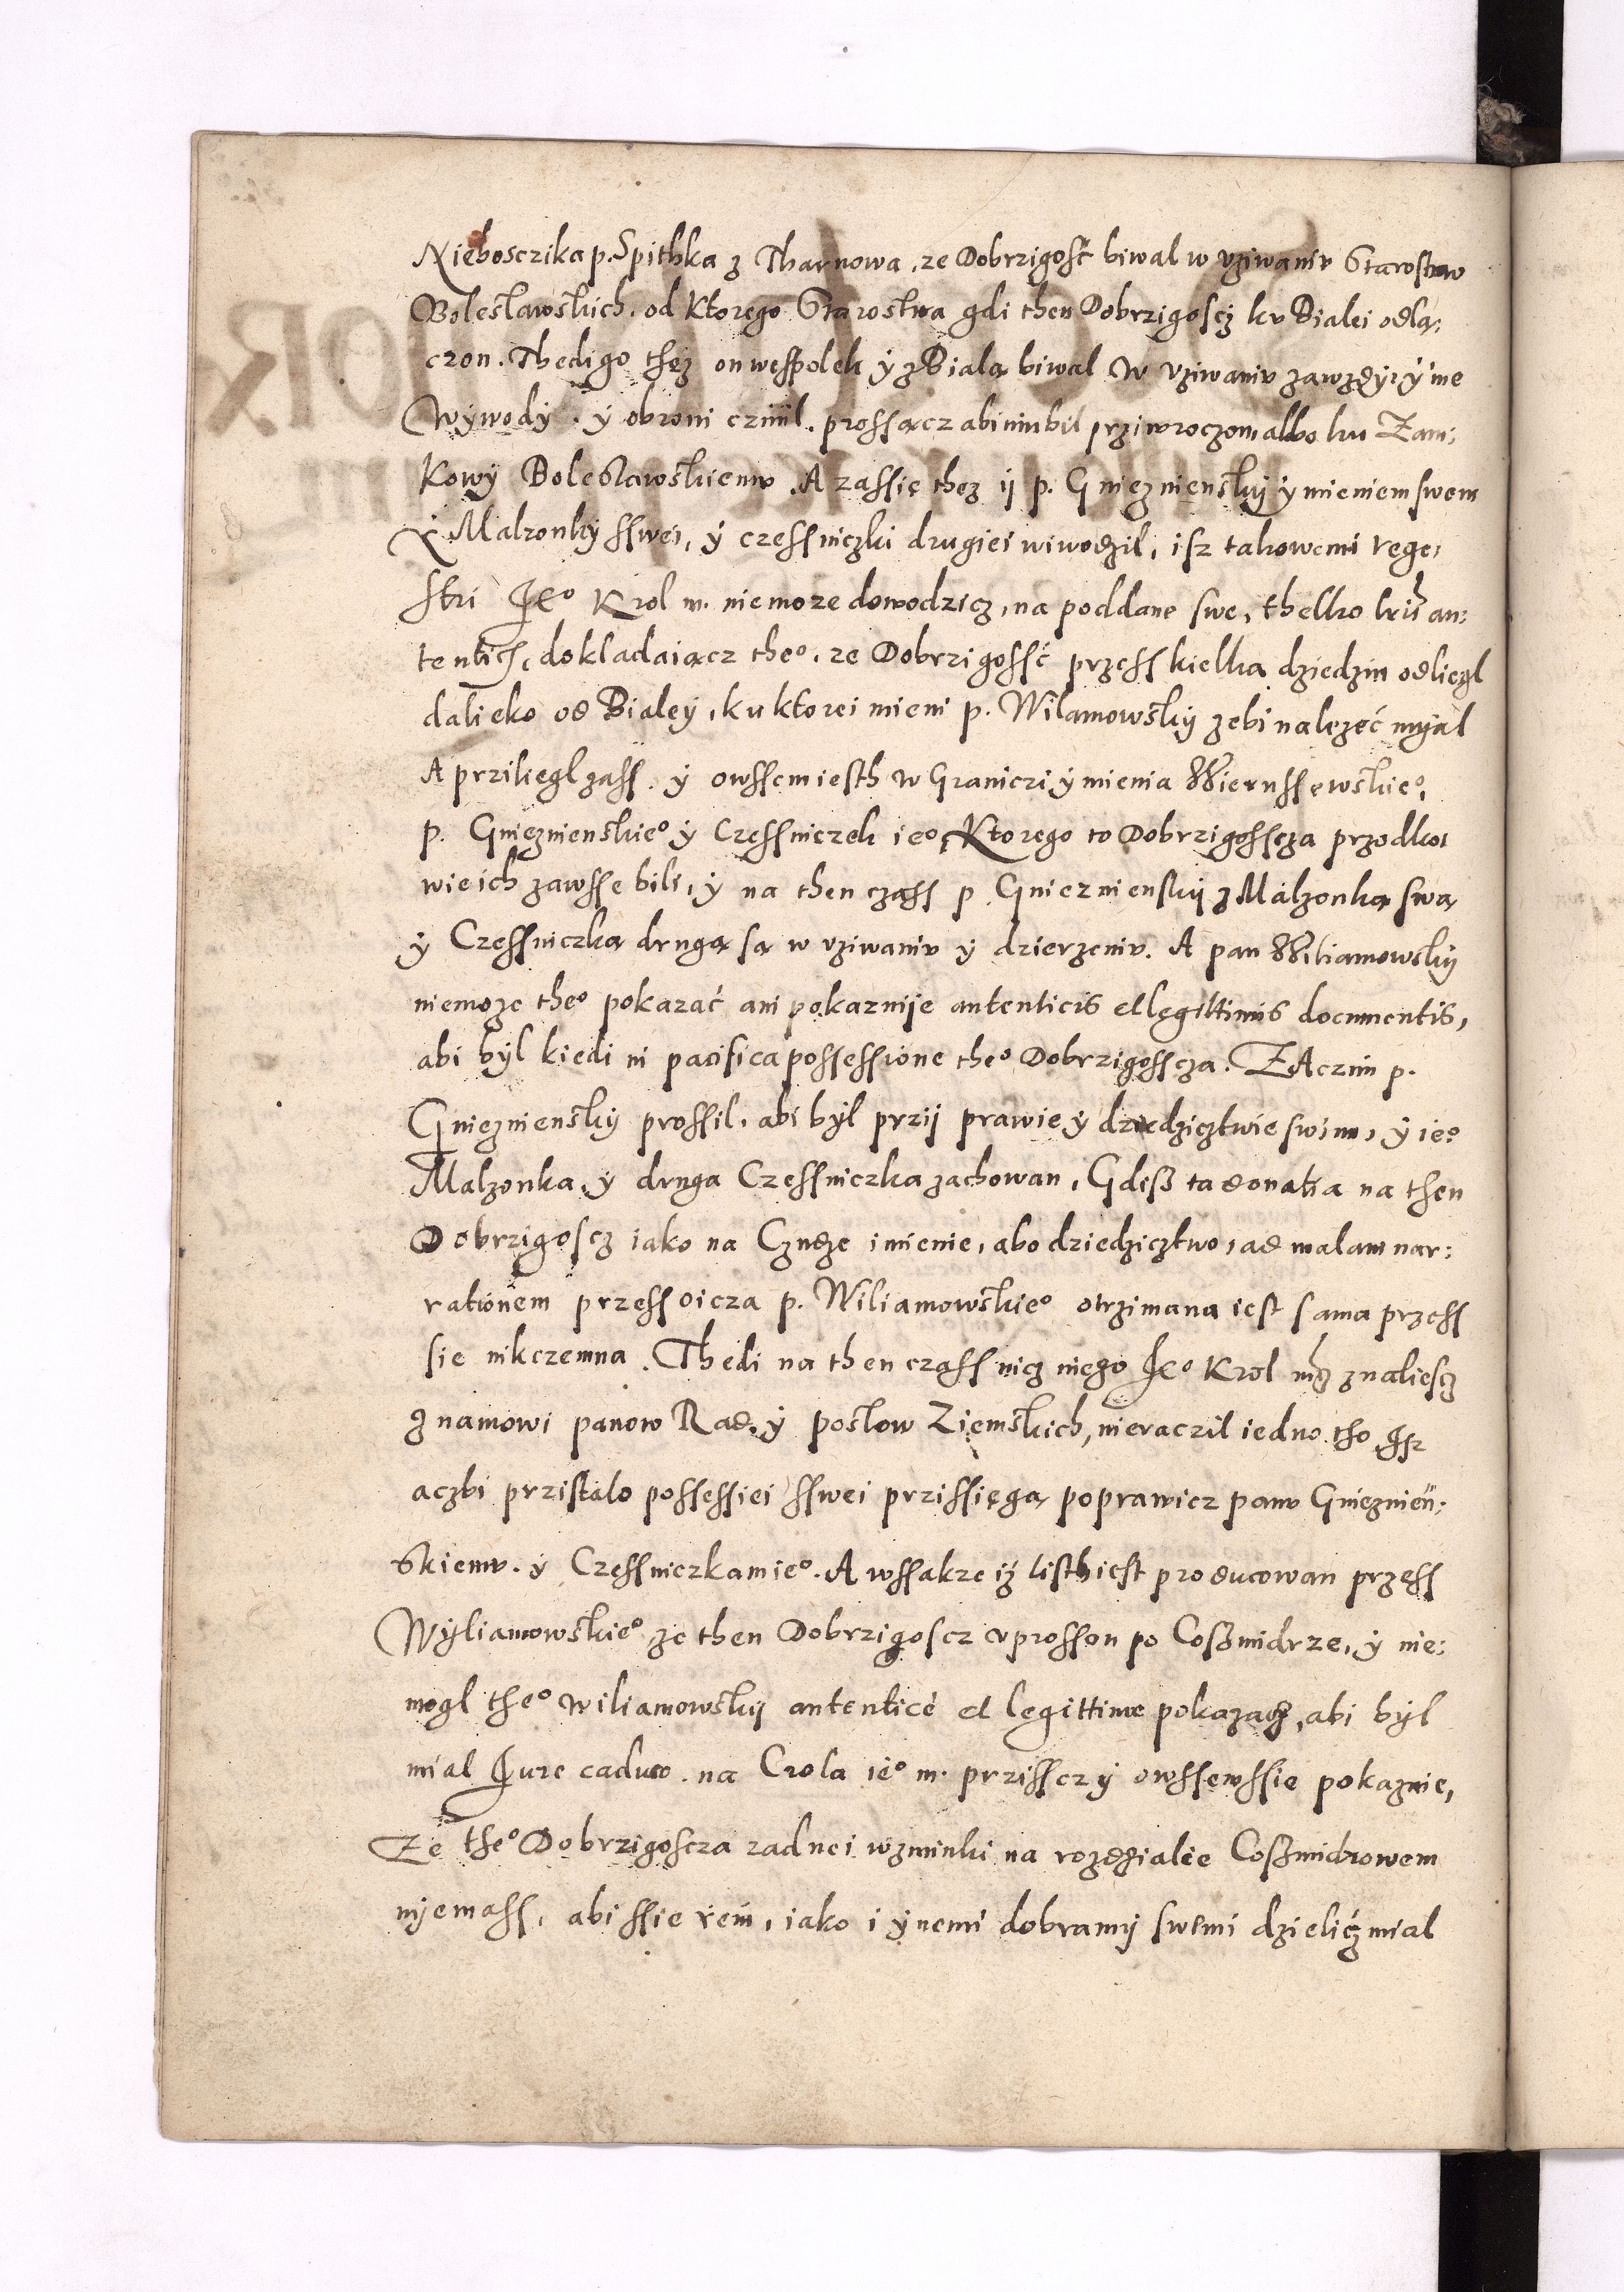 Niebosczika p. Spithka z Tharnowa, ze Dobrzigość biwal w vziwaniv Starostw
Boleslawskich, od ktorego Starostwa gdi then Dobrzigoscz kv Bialei odla,
czon. Thedi go thez on wespolek ÿ z Biala biwal w vziwaniv zawzdÿ, ÿ ine
Wÿwodÿ, ÿ obroni cziniil, prossacz abi nim bil prziwroczon albo ku Zam,
kowÿ Boleslawskiemv. A zassię thez ij p. Gnieznienskij ÿmieniem swem
Y Malzonkÿ sswei, ÿ czessniczki drugiei wiwodzil, isz takowemi rege,
stri Je° Krol m. niemoze dowodzicz, na poddane swe, thelko an,
tentich, dokladaiącz the°, ze Dobrzigosść przess kielka dziedzin odliegl
dalieko od Bialeÿ, ku ktorei mieni p. Wilamowskÿ zebi nalezeć myal
A przilieglzass ÿ owssem iesth w Graniczi ÿmienia Wierussewskie°,
p. Gnieznienskie° ÿ Czessniczek ie°, Ktorego to Dobrzigosscza przodko,
wie ich zawsse bili, ÿ na then czass p. Gnieznienskij z Malzonka swa
ÿ Czessniczka druga sa w vziwaniv ÿ dzierzeniv. A pan Wiliamowskÿ
niemoze the° pokazać ani pokazuije autenticis et legittimis documentis,
abi bÿl kiedi in pacifica possessione the° Dobrzigosscza. ZAczim p.
Gnieznienskÿ prossil, abi bÿl przij prawie ÿ dziedzicztwie swim, ÿ ie°
Malzonka, ÿ druga Czessniczka zachowan, Gdisz ta donatia na then
Dobrzigoscz iako na Czudze imienie, abo dziedzicztwo, ad malam nar,
rationem przess oicza p. Wiliamowskie° otrzimana iest sama przess
sie nikczemna. Thedi na then czass nicz niego Je° Krol mcz znaliescz
z namowi panow Rad, ÿ poslow Ziemskich, nieraczil iedno tho Jsz
aczbi przistalo possessiei sswei przissięga poprawicz panv Gnieznień,
skiemv, ÿ Czessniczkam ie°. A wssakze iż listh iest producowan przess
Wÿliamowskie° ze then Dobrzigoscz vprosson po Coszmidrze, ÿ nie,
mogl the° wiliamowskij autenticè et legittime pokazacz, abi bÿl
mial Jure caduco na Crola ie° m. prziscz ÿ owssem ssie pokazuie,
Ze the° Dobrzigoscza zadnei wzminki na rozdzialie Coszmidrowem
nÿemass, abi ssie iem, iako i ÿnemi dobramÿ swemi dzielicz mial